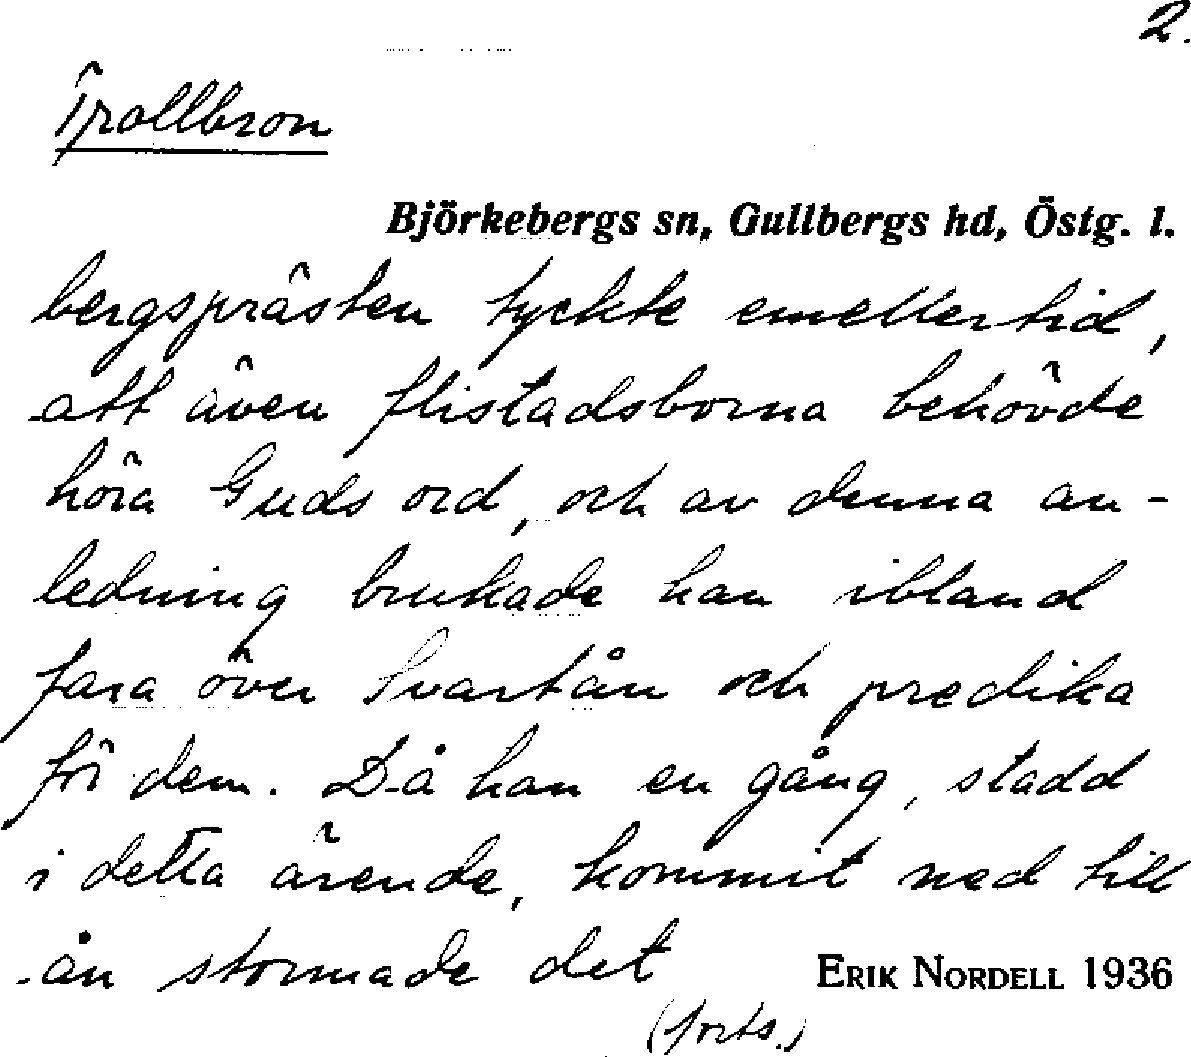 2.
Trollbron
Björkebergs sn, Gullbergs hd, Östg. l.
bergsprästen tyckte emellertid,
att även flistadsborna behövde
höra Guds ord, och av denna an-
ledning brukade han ibland
fara över Svartån och predika
för dem. Då han en gång, stadd
i detta ärende, kommit ned till
ån stormade det
ERIK NORDELL 1936
(forts.)